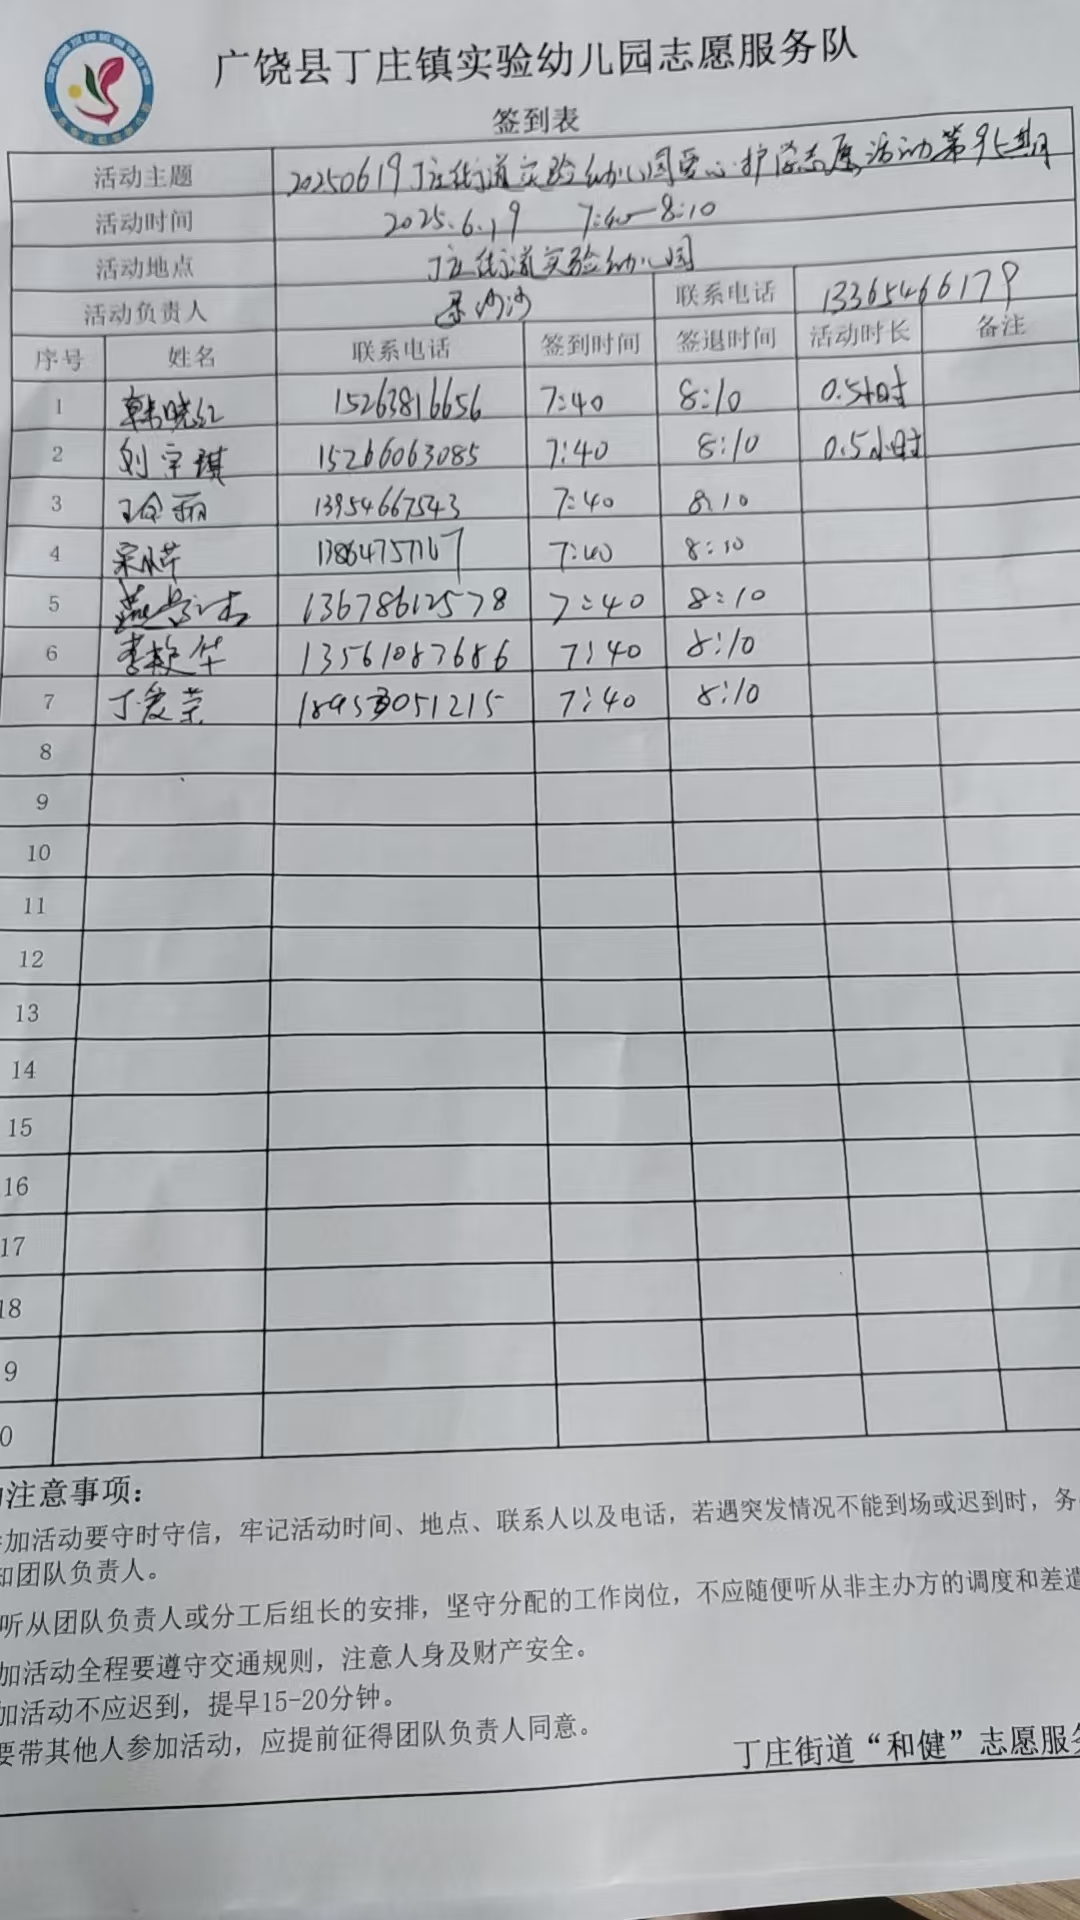 广饶县丁庄镇实验幼儿园志愿服务队
签到表
活动主题 20250619丁庄街道实验幼儿园爱心护学志愿活动第 期
活动时间 2025.6.19 7:40—8:10
活动地点 丁庄街道实验幼儿园
活动负责人 沙沙 联系电话 13365466179
序号 姓名 联系电话 签到时间 签退时间 活动时长 备注
1 韩晓红 15263816656 7:40 8:10 0.5小时
2 刘宗琪 15266063085 7:40 8:10 0.5小时
3 王玲丽 13954667543 7:40 8:10
4 宋 芹 13864757167 7:40 8:10
5 燕 13678612578 7:40 8:10
6 李艳华 13561087686 7:40 8:10
7 丁爱荣 18953051215 7:40 8:10
8
9
10
11
12
13
14
15
16
17
18
9
0
注意事项：
参加活动要守时守信，牢记活动时间、地点、联系人以及电话，若遇突发情况不能到场或迟到时，务
知团队负责人。
听从团队负责人或分工后组长的安排，坚守分配的工作岗位，不应随便听从非主办方的调度和差遣
加活动全程要遵守交通规则，注意人身及财产安全。
加活动不应迟到，提早15-20分钟。
要带其他人参加活动，应提前征得团队负责人同意。
丁庄街道“和健”志愿服务